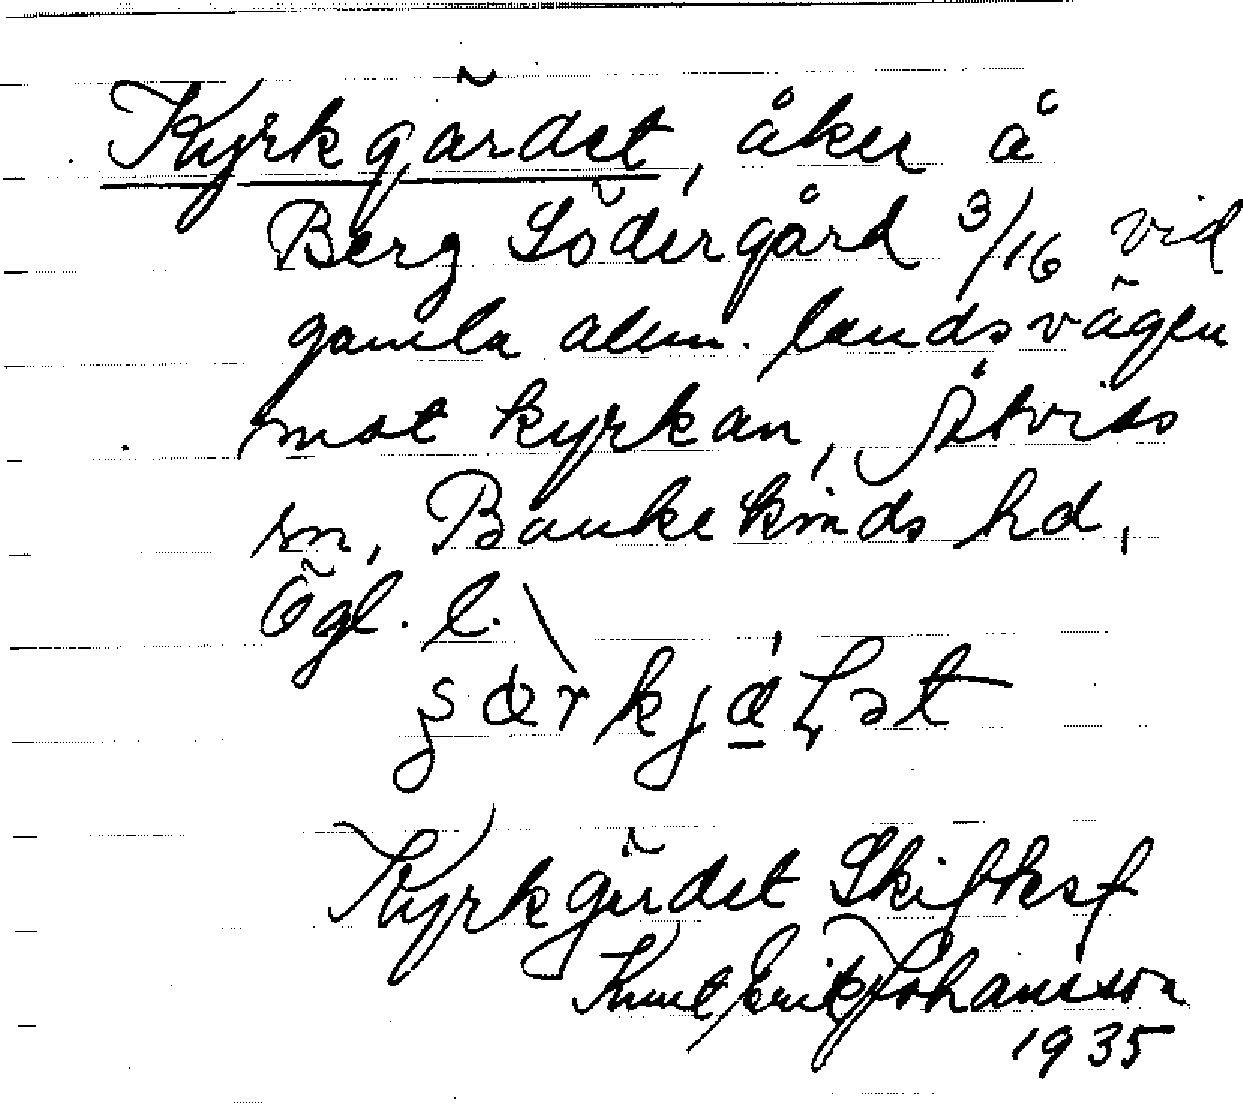 Kyrkgärdet, åker å
Berg Södergård 3/16 vid
gamla alm. landsvägen
mot kyrkan, Åtvids
sn, Bankekinds hd,
Ögl. l.
Kyrkgärdet Skifteskf
Knut Erik Johansson
1935